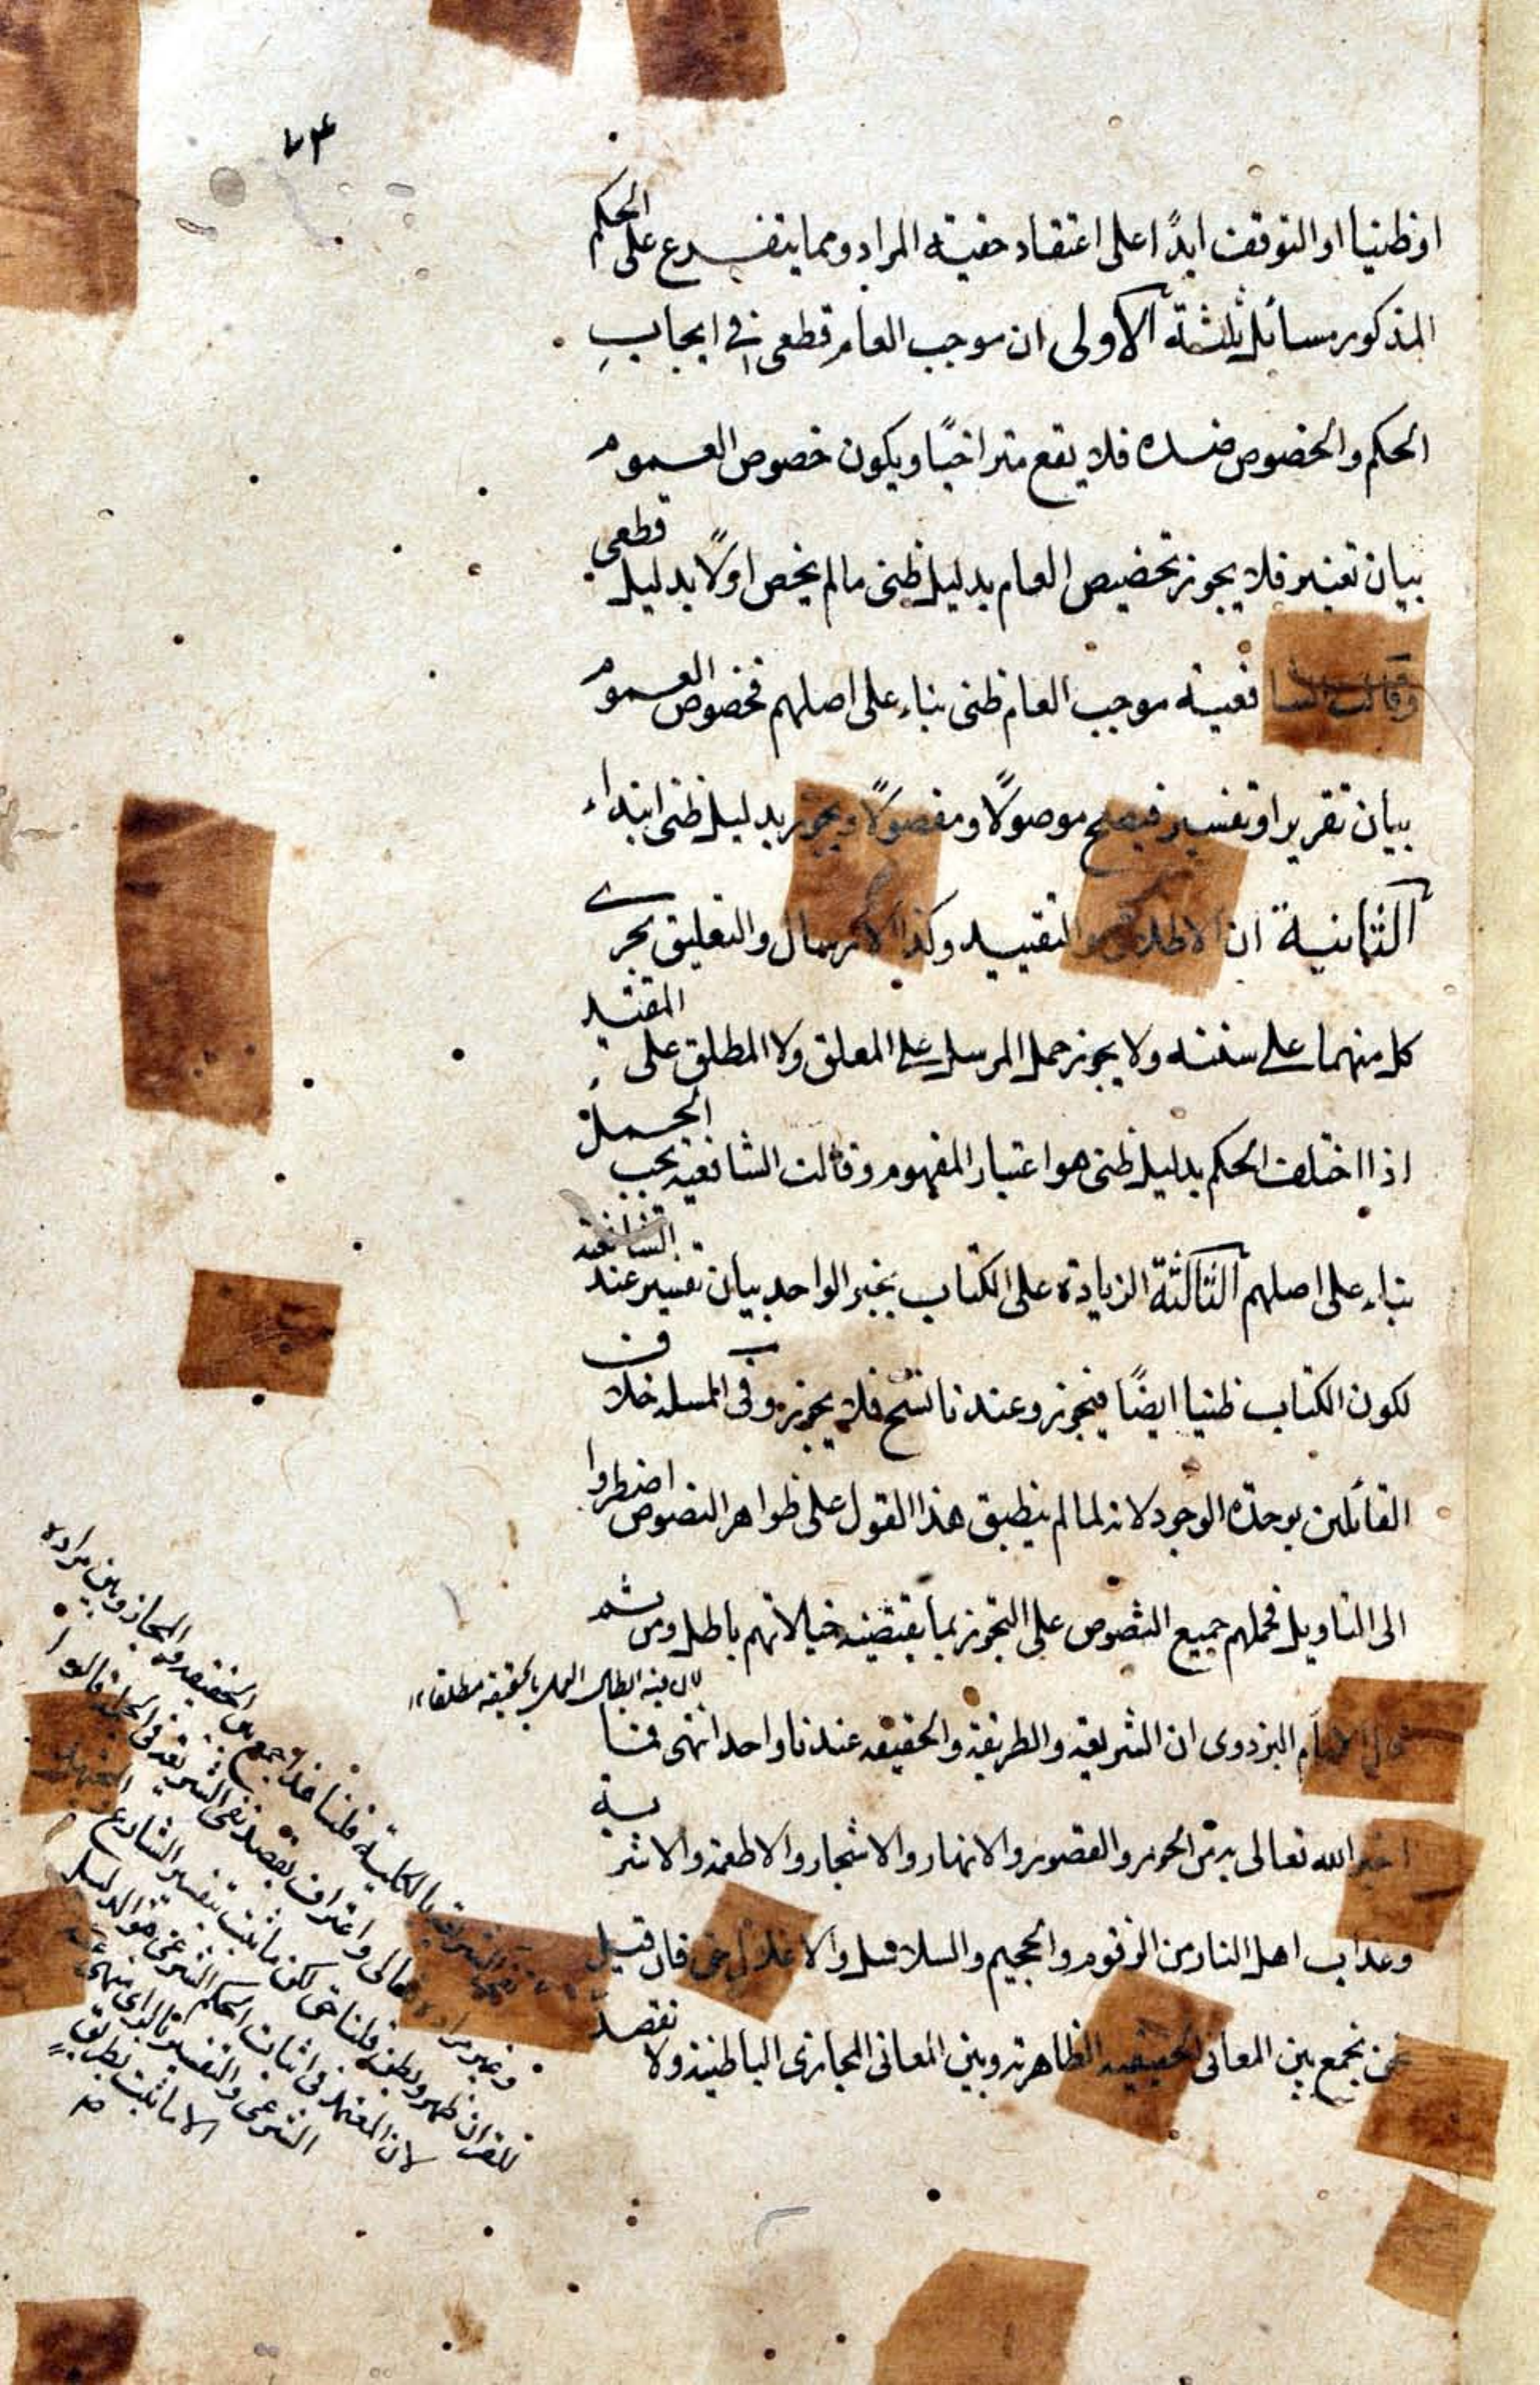 ٧٤
او ظنيا او التوقف ابدًا على اعتقاد حقية المراد ومما يتفرع على الحكم
المذكور مسائل ثلثة الاولى ان موجب العام قطعى فى ايجاب
الحكم والخصوص ضده فلا يقع متراخيًا ويكون خصوص العموم
بيان تغيير فلا يجوز تخصيص العام بدليل ظنى ما لم يخص اولًا بدليل قطعى
وقالت الشافعية موجب العام ظنى بناء على اصلهم فخصوص العموم
بيان تقرير او تفسير فيصلح موصولًا ومفصولًا ويجوز بدليل ظنى ابتداء
الثانية ان الاطلاق والتقييد وكذا الارسال والتعليق يجرى
كل منهما على سننه ولا يجوز حمل المرسل على المعلق ولا المطلق على المقيد
اذا اختلف الحكم بدليل ظنى هو اعتبار المفهوم وقالت الشافعية يجب الحمل
بناء على اصلهم الثالثة الزيادة على الكتاب بخبر الواحد بيان تفسير عند الشافعية
لكون الكتاب ظنيا ايضًا فيجوز وعندنا نسخ فلا يجوز وفى المسئلة خلاف
القائلين بوحدة الوجود لانه لما لم ينطبق هذا القول على ظواهر النصوص اضطروا
الى التاويل فحملهم جميع النصوص على التجوز بما يقتضيه خيالاتهم باطل ومن ثم
لان فيه ابطال العمل بالحقيقة مطلقا
قال الامام البزدوى ان الشريعة والطريقة والحقيقة عندنا واحد انتهى فما
اخبر الله تعالى به من الحور والقصور والانهار والاشجار والاطعمة والاشربة
وعذاب اهل النار من الزقوم والحجيم والسلاسل والاغلال حق فان قيل
نحن نجمع بين المعانى الحقيقية الظاهرة وبين المعانى المجازى الباطنية ولا نقصد
نفى الشريعة بالكلية قلنا هذا جمع بين الحقيقة والمجاز وبين مراده
وغير مراده تعالى واعتراف بقصد نفى الشريعة فى الجملة قالوا
للقران ظهر وبطن قلنا حق لكن ما ثبت بتفسير الشارع
لان المعتمد فى اثبات الحكم الشرعى هو الدليل
الشرعى والتفسير بالراى منهى عنه
الا ما ثبت بطريق
صح